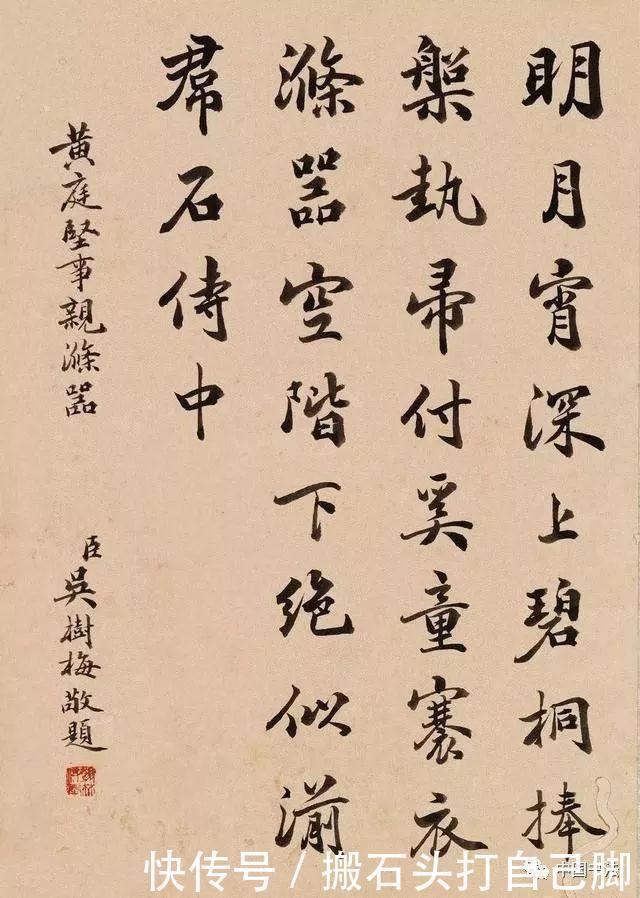 明月宵深上碧桐捧
槃執帚付奚童褰衣
滌器空階下絶似湔
帬石侍中
黄庭堅事親滌器
臣吳樹梅敬題
快传号 / 搬石头打自己脚